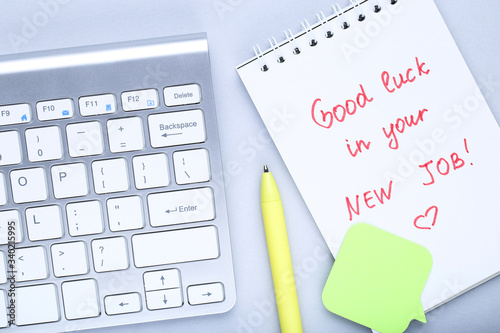 F9 F10 F11 F12 Delete
) 0 _ - + = Backspace
O P { [ } ] | \
L : ; " ' Enter
< , > . ? /
Good luck
in your
NEW JOB!
Adobe Stock | #340255995